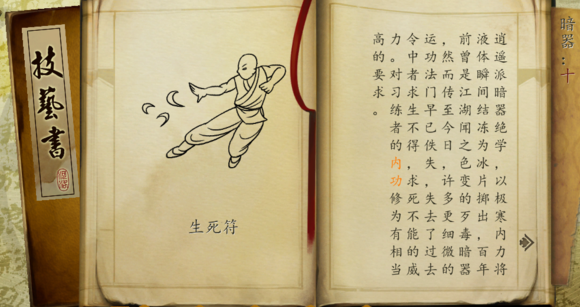 技藝書
生死符
暗器：十
逍遥派暗器绝学，以极寒内力将
液体瞬间结冻为冰片掷出，百年
前曾是江湖闻之色变的歹毒暗器
，然而传至今日，许多更细微的
运功法门早已佚失，失去了过去
令中者求生不得，求死不能的威
力。对习练者的内功修为有相当
高的要求。